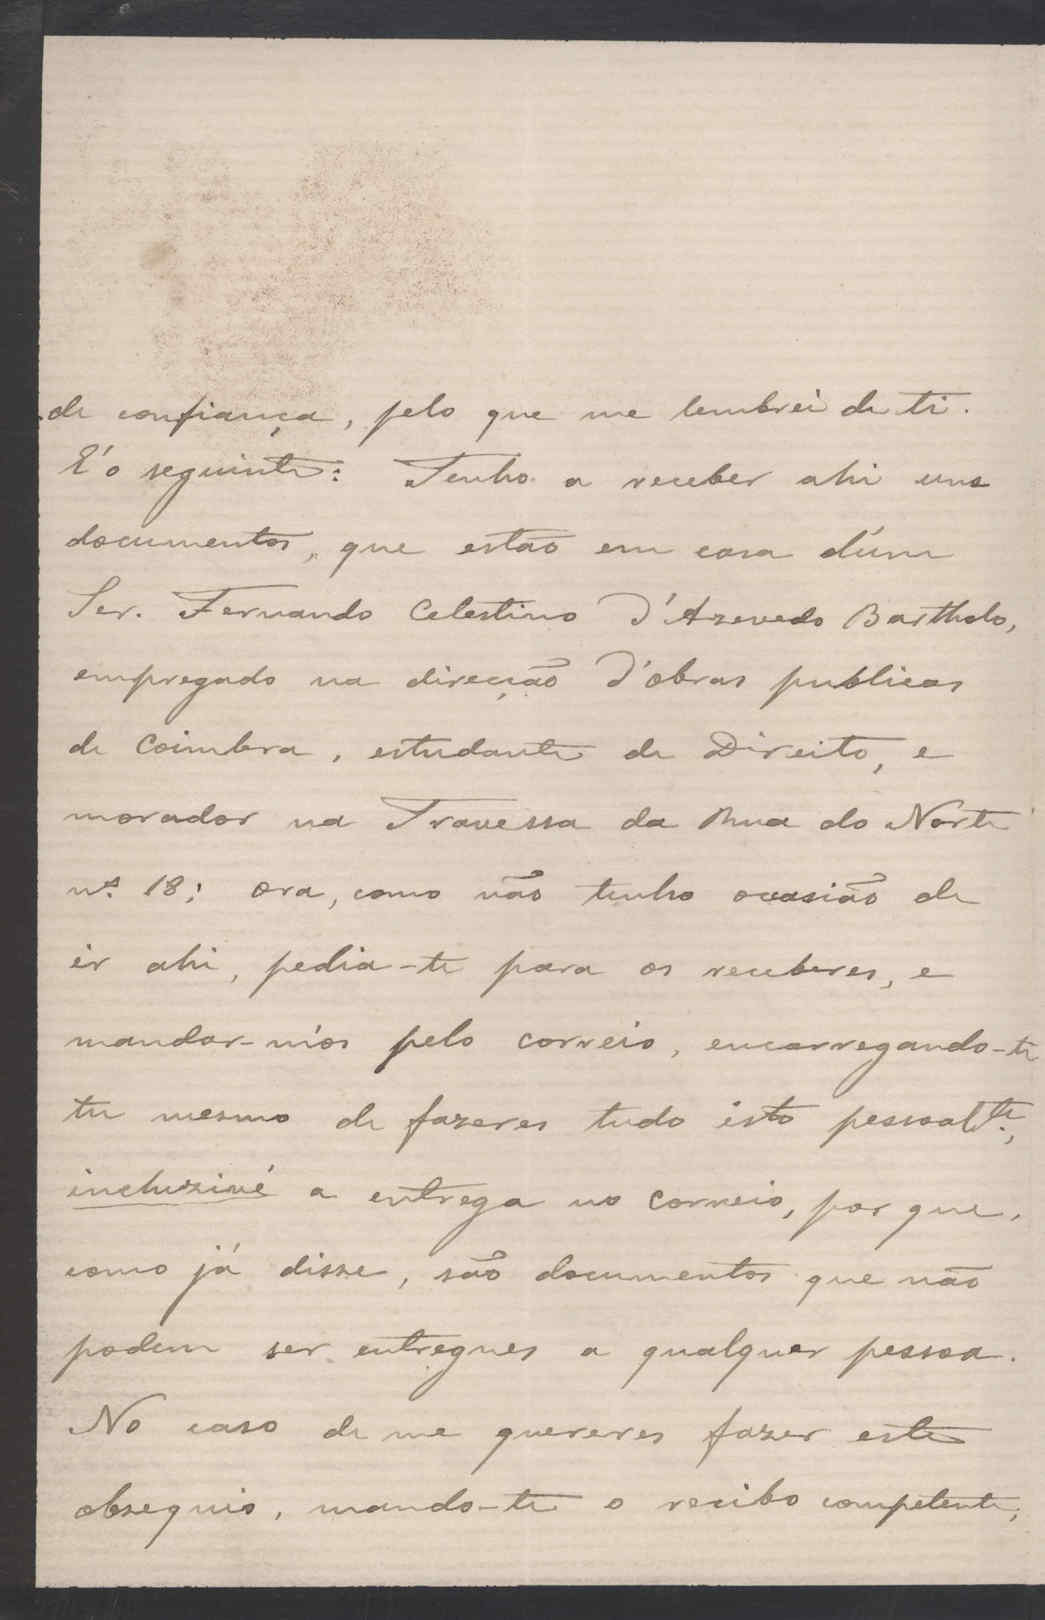 de confiança, pelo que me lembrei de ti.
É'o seguinte: Tenho a receber ahi uns
documentos, que estão em casa d'um
Ser. Fernando Celestino d'Azevedo Bartholo,
empregado na direcção d'obras publicas
de Coimbra, estudante de Direito, e
morador na Travessa da Rua do Norte
nº. 18; ora, como não tenho occasião de
ir ahi, pedia-te para os receberes, e
mandar-m'os pelo correio, encarregando-te
tu mesmo de fazeres tudo isto pessoalte.,
incluzivé a entrega no correio, por que,
como já disse, são documentos que não
podem ser entregues a qualquer pessoa.
No caso de me quereres fazer este
obsequio, mando-te o recibo competente,